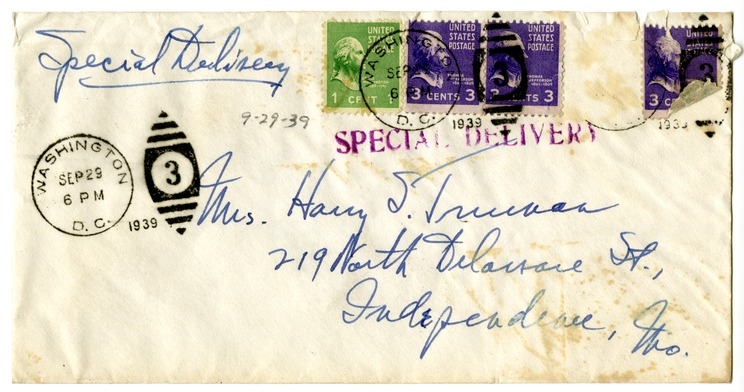 Special Delivery
UNITED STATES
1 CENT 1
UNITED STATES POSTAGE
THOMAS JEFFERSON
3 CENTS 3
UNITED STATES POSTAGE
THOMAS JEFFERSON
CENTS 3
3 C
WASHINGTON
SEP
6 PM
D. C.
1939
3
3
9-29-39
SPECIAL DELIVERY
WASHINGTON
SEP 29
6 PM
D. C.
1939
3
Mrs. Harry S. Truman
219 North Delaware St.,
Independence, Mo.